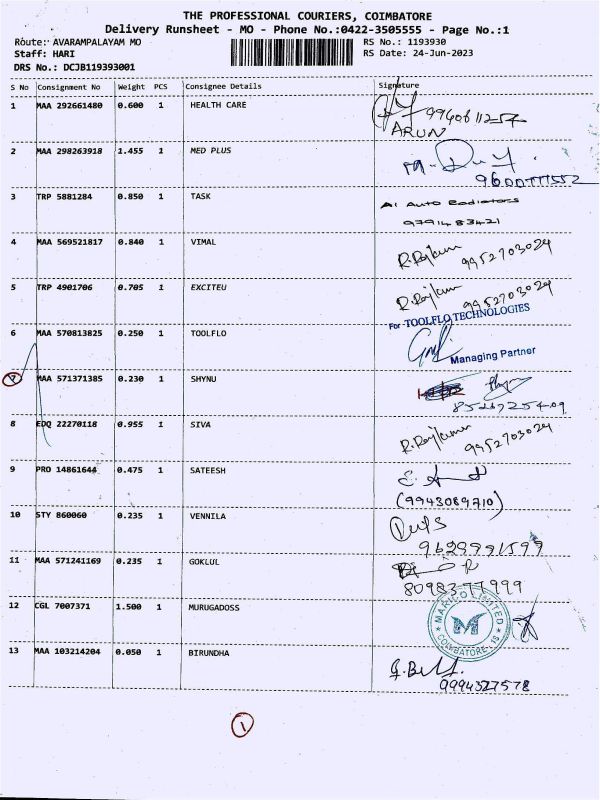 THE PROFESSIONAL COURIERS, COIMBATORE
Delivery Runsheet - MO - Phone No.:0422-3505555 - Page No.:1
Route: AVARAMPALAYAM MO RS No.: 1193930
Staff: HARI RS Date: 24-Jun-2023
DRS No.: DCJB119393001
S No Consignment No Weight PCS Consignee Details Signature
1 MAA 292661480 0.600 1 HEALTH CARE
ARUN
2 MAA 298263918 1.455 1 MED PLUS
9600777552
3 TRP 5881284 0.850 1 TASK A1 Auto Radiators
9791483421
4 MAA 569521817 0.840 1 VIMAL R.Rajkumar 9952703029
5 TRP 4901706 0.705 1 EXCITEU R.Rajkumar 9952703029
For TOOLFLO TECHNOLOGIES
6 MAA 570813825 0.250 1 TOOLFLO
Managing Partner
7 MAA 571371385 0.230 1 SHYNU
8526725409
8 EDQ 22270118 0.955 1 SIVA R.Rajkumar 9952703029
9 PRO 14861644 0.475 1 SATEESH
(9943089710)
10 STY 860060 0.235 1 VENNILA
9629991599
11 MAA 571241169 0.235 1 GOKLUL
8098377999
12 CGL 7007371 1.500 1 MURUGADOSS MARICO LIMITED
COIMBATORE-15
13 MAA 103214204 0.050 1 BIRUNDHA
9994327578
1